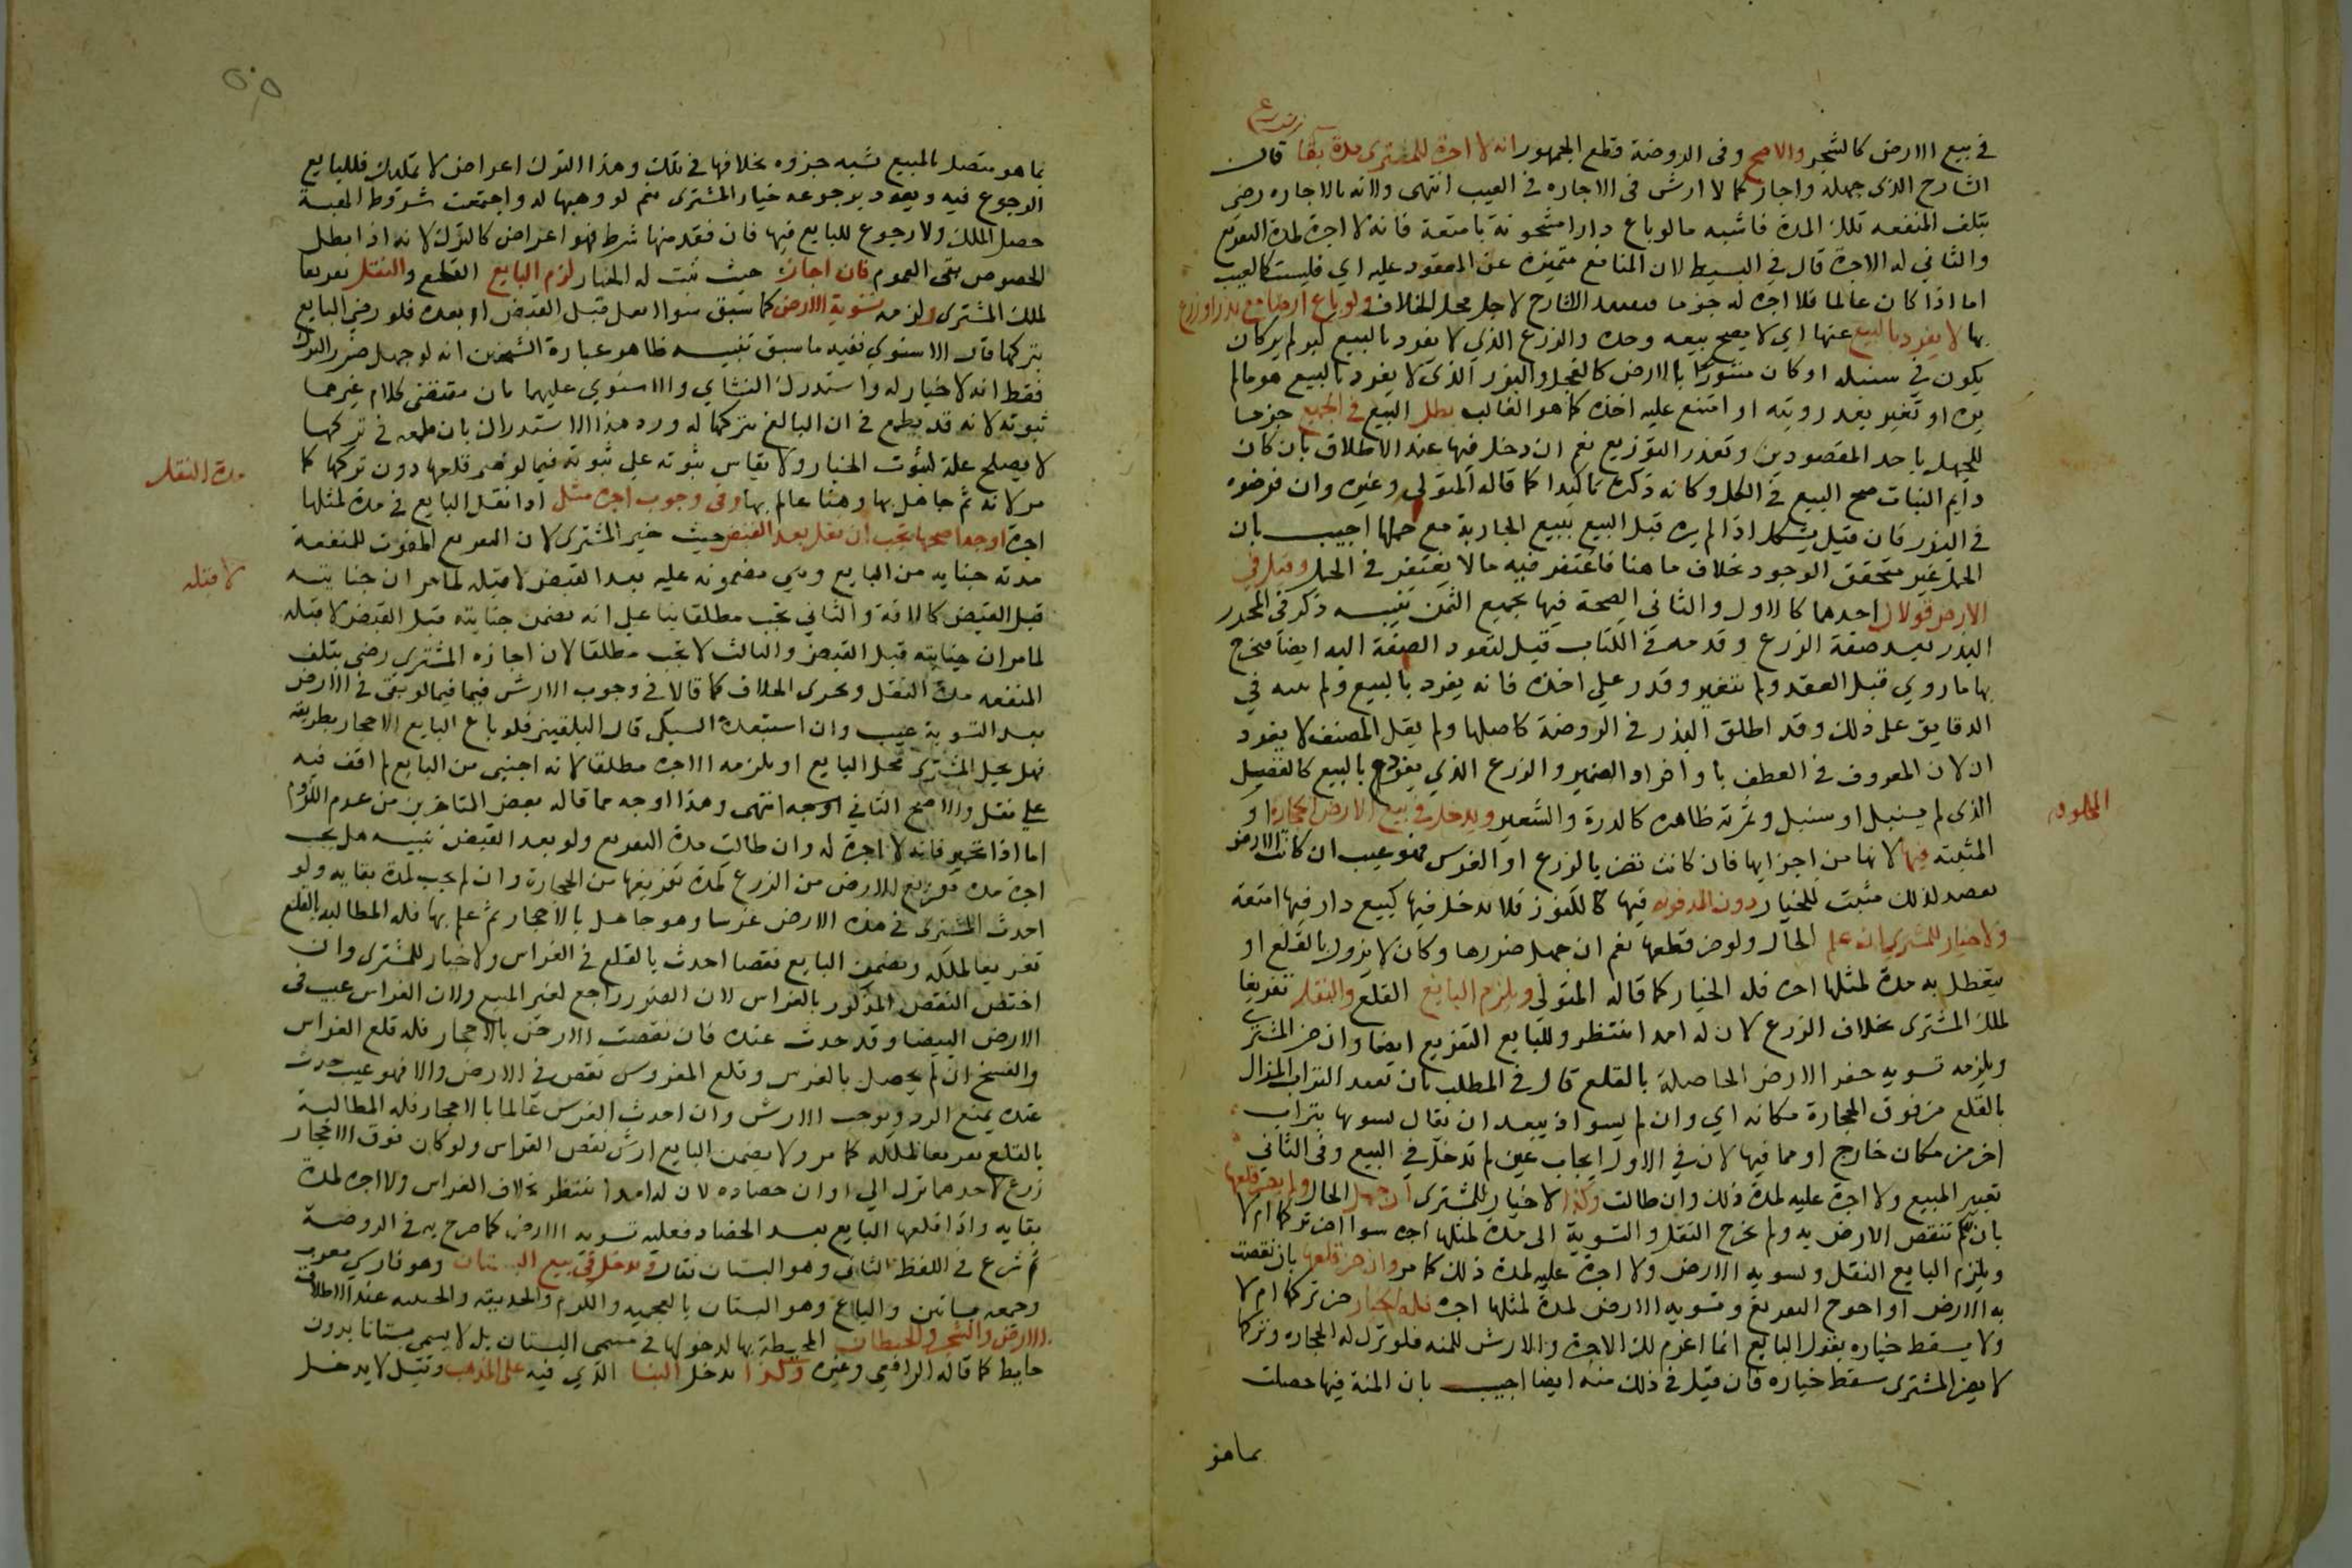 في بيع الارض كالشجر والاصح وفى الروضة قطع الجمهور انه لا اجرة للمشترى مدة بقا قال
الشارح الذى جهله واجاز كما لا ارش فى الاجاره فى العيب انتهى ولانه بالاجازه رضى
بتلف المنفعه تلك المدة فاشبه مالو باع دارا مشحونة بامتعة فانه لا اجرة لمدة التفريغ
والثانى له الاجرة قال في البسيط لان المنافع متميزة عن المعقود عليه اي فليست كالعيب
اما اذا كان عالما فلا اجرة له جزما الشارح لاجل محل الخلاف ولو باع ارضا مع بذر او زرع
بها لا يفرد بالبيع عنها اي لا يصح بيعه وحده والزرع الذي لا يفرد بالبيع كبر لم ير كان
يكون في سنبله او كان مستورا بالارض كالفجل والبزر الذى لا يفرد بالبيع هو ما لم
يره او تغير بعد رويته او امتنع عليه اخذه كما هو الغالب بطل البيع في الجميع جزما
للجهل باحد المقصودين وتعذر التوزيع نعم ان دخل فيها عند الاطلاق بان كان
دايم النبات صح البيع فى الكل وكانه ذكره تاكيدا كما قاله المتولي وغيره وان فرضوه
فى البذر فان قيل يشكل اذا لم يره قبل البيع ببيع الجارية مع حملها اجيب بان
الحمل غير متحقق الوجود بخلاف ما هنا فاغتفر فيه ما لا يغتفر فى الحمل وقيل في
الارض قولان احدهما كالاول والثاني الصحة فيها بجميع الثمن تنبيه ذكر فى المحرر
البذر بعد صفة الزرع وقدمه في الكتاب قيل لتعود الصفة اليه ايضا فيخرج
بها ما روي قبل العقد ولم يتغير وقدر علي اخذه فانه يفرد بالبيع ولم ينبه في
الدقايق على ذلك وقد اطلق البذر في الروضة كاصلها ولم يقل المصنف لا يفرد
ان لان المعروف في العطف باو افراد الضمير والزرع الذي يفرد بالبيع كالقصيل
الذى لم يسنبل او سنبل وثمرته ظاهره كالذرة والشعير ويدخل في بيع الارض الحجارة او
المخلوقه
المثبته فيها لانها من اجزايها فان كانت تضر بالزرع او الغرس فهو عيب ان كانت الارض
تقصد لذلك مثبت للخيار دون المدفونه فيها كالكنوز فلا تدخل فيها كبيع دار فيها امتعة
ولا خيار للمشترى ان علم الحال ولو ضر قطعها نعم ان جهل ضررها وكان لا يزول بالقلع او
يتعطل به مدة لمثلها اجره فله الخيار كما قاله المتولي ويلزم البايع القلع والنقل تفريغا
لملك المشترى بخلاف الزرع لان له امدا ينتظر وللبايع التفريغ ايضا وان ضر المشترى
ويلزمه تسويه حفر الارض الحاصلة بالقلع قال فى المطلب بان يعيد التراب المزال
بالقلع من فوق الحجارة مكانه اي وان لم يسو اذ يبعد ان يقال يسويها بتراب
اخر من مكان خارج او مما فيها لان في الاول ايجاب عين لم تدخل في البيع وفى الثانى
تغيير المبيع ولا اجرة عليه لمدة ذلك وان طالت وكذا لا خيار للمشترى ان جهل الحال ولم يضر قلعها
بان لم تنقص الارض به ولم يحوج النقل والتسوية الى مدة لمثلها اجره سوا اضر تركها ام لا
ويلزم البايع النقل وتسويه الارض ولا اجرة عليه لمدة ذلك كما مر وان ضر قلعها بان نقصت
به الارض او احوج التفريغ وتسويه الارض لمدة لمثلها اجره فله الخيار ضر تركها ام لا
ولا يسقط خياره بقول البايع انما اغرم لك الاجرة والارش للمنه فلو ترك له الحجاره وتركها
لا يضر المشترى سقط خياره فان قيل فى ذلك منة ايضا اجيب بان المنة فيها حصلت
بما هو
بما هو متصل بالمبيع يشبه جزوه بخلافها في تلك وهذا الترك اعراض لا تمليك فللبايع
الرجوع فيه ويعود برجوعه خيار المشترى نعم لو وهبها له واجتمعت شروط الهبة
حصل الملك ولا رجوع للبايع فيها فان فقد منها شرط فهو اعراض كالترك لانه اذا بطل
الخصوص بقى العموم فان اجاز حيث ثبت له الخيار لزم البايع القلع والنقل تفريغا
لملك المشترى ولزمه تسوية الارض كما سبق سوا انقل قبل القبض او بعده فلو رضى البايع
بتركها قال الاسنوي ففيه ما سبق تنبيه ظاهر عبارة الشيخين انه لو جهل ضرر الترك
فقط انه لا خيار له واستدرك النشاي والاسنوي عليهما بان مقتضى كلام غيرهما
ثبوته لانه قد يطمع في ان البايع يتركها له ورد هذا الاستدراك بان طمعه في تركها
لا يصلح علة لثبوت الخيار ولا يقاس ثبوته على ثبوته فيما لو ضر قلعها دون تركها كما
مر لانه ثم جاهل بها وهنا عالم بها وفى وجوب اجره مثل اذا نقل البايع في مدة لمثلها
مدة النقل
اجرة اوجه اصحها تجب ان نقل بعد القبض حيث خير المشترى لان التفريغ المفوت للمنفعة
مدته جنايه من البايع وهي مضمونه عليه بعد القبض لا قبله لما مر ان جنايته
لا قبله
قبل القبض كالافة والثاني تجب مطلقا بنا على انه يضمن جنايته قبل القبض لا قبله
لما مر ان جنايته قبل القبض والثالث لا تجب مطلقا لان اجازه المشترى رضى بتلف
المنفعه مدة النقل ويجرى الخلاف كما قالا في وجوب الارش فيما فيما لو بقى في الارض
بعد التسوية عيب وان استبعده السبكى قال البلقينى فلو باع البايع الاحجار بطريقه
فهل يحل المشترى محل البايع او يلزمه الاجره مطلقا لانه اجنبي من البايع لم اقف فيه
على نقل والاصح الثاني اوجه انتهى وهذا اوجه مما قاله بعض المتاخرين من عدم اللزوم
اما اذا تخير فانه لا اجرة له وان طالت مدة التفريغ ولو بعد القبض تنبيه هل يجب
اجرة مدة تفريغ الارض من الزرع كمدة تفريغها من الحجارة وان لم يجب لمدة بقايه ولو
احدث المشترى في هذه الارض غرسا وهو جاهل بالاحجار ثم علم بها فله المطالبه بالقلع
تفريغا لملكه ويضمن البايع نقصا احدث بالقلع في الغراس ولا خيار للمشترى وان
اختص النقص المذكور بالغراس لان الضرر راجع لغير المبيع ولان الغراس عيب فى
الارض البيضا وقد حدث عنده فان نقصت الارض بالاحجار فله قلع الغراس
والفسخ ان لم يحصل بالغرس وقلع المغروس نقص في الارض والا فهو عيب حدث
عنده يمنع الرد ويوجب الارش وان احدث الغرس عالما بالاحجار فله المطالبة
بالقلع تفريغا لملكه كما مر ولا يضمن البايع ارش نقص الغراس ولو كان فوق الاحجار
زرع لاحدهما ترك الى اوان حصاده لان له امدا ينتظر بخلاف الغراس ولا اجره لمدة
بقايه واذا قلعها البايع بعد الحصاد فعليه تسويه الارض كما صرح به في الروضة
ثم شرع في اللفظ الثانى وهو البستان فقال ويدخل في بيع البستان وهو فارسي معرب
وجمعه بساتين والباغ وهو البستان بالعجميه والكرم والحديقه عند الاطلاق
الارض والشجر والحيطان المحيطة بها لدخولها في مسمى البستان بل لا يسمى بستانا بدون
حايط كما قاله الرافعي وغيره وكذا يدخل البنا الذي فيه على المذهب وقيل لا يدخل